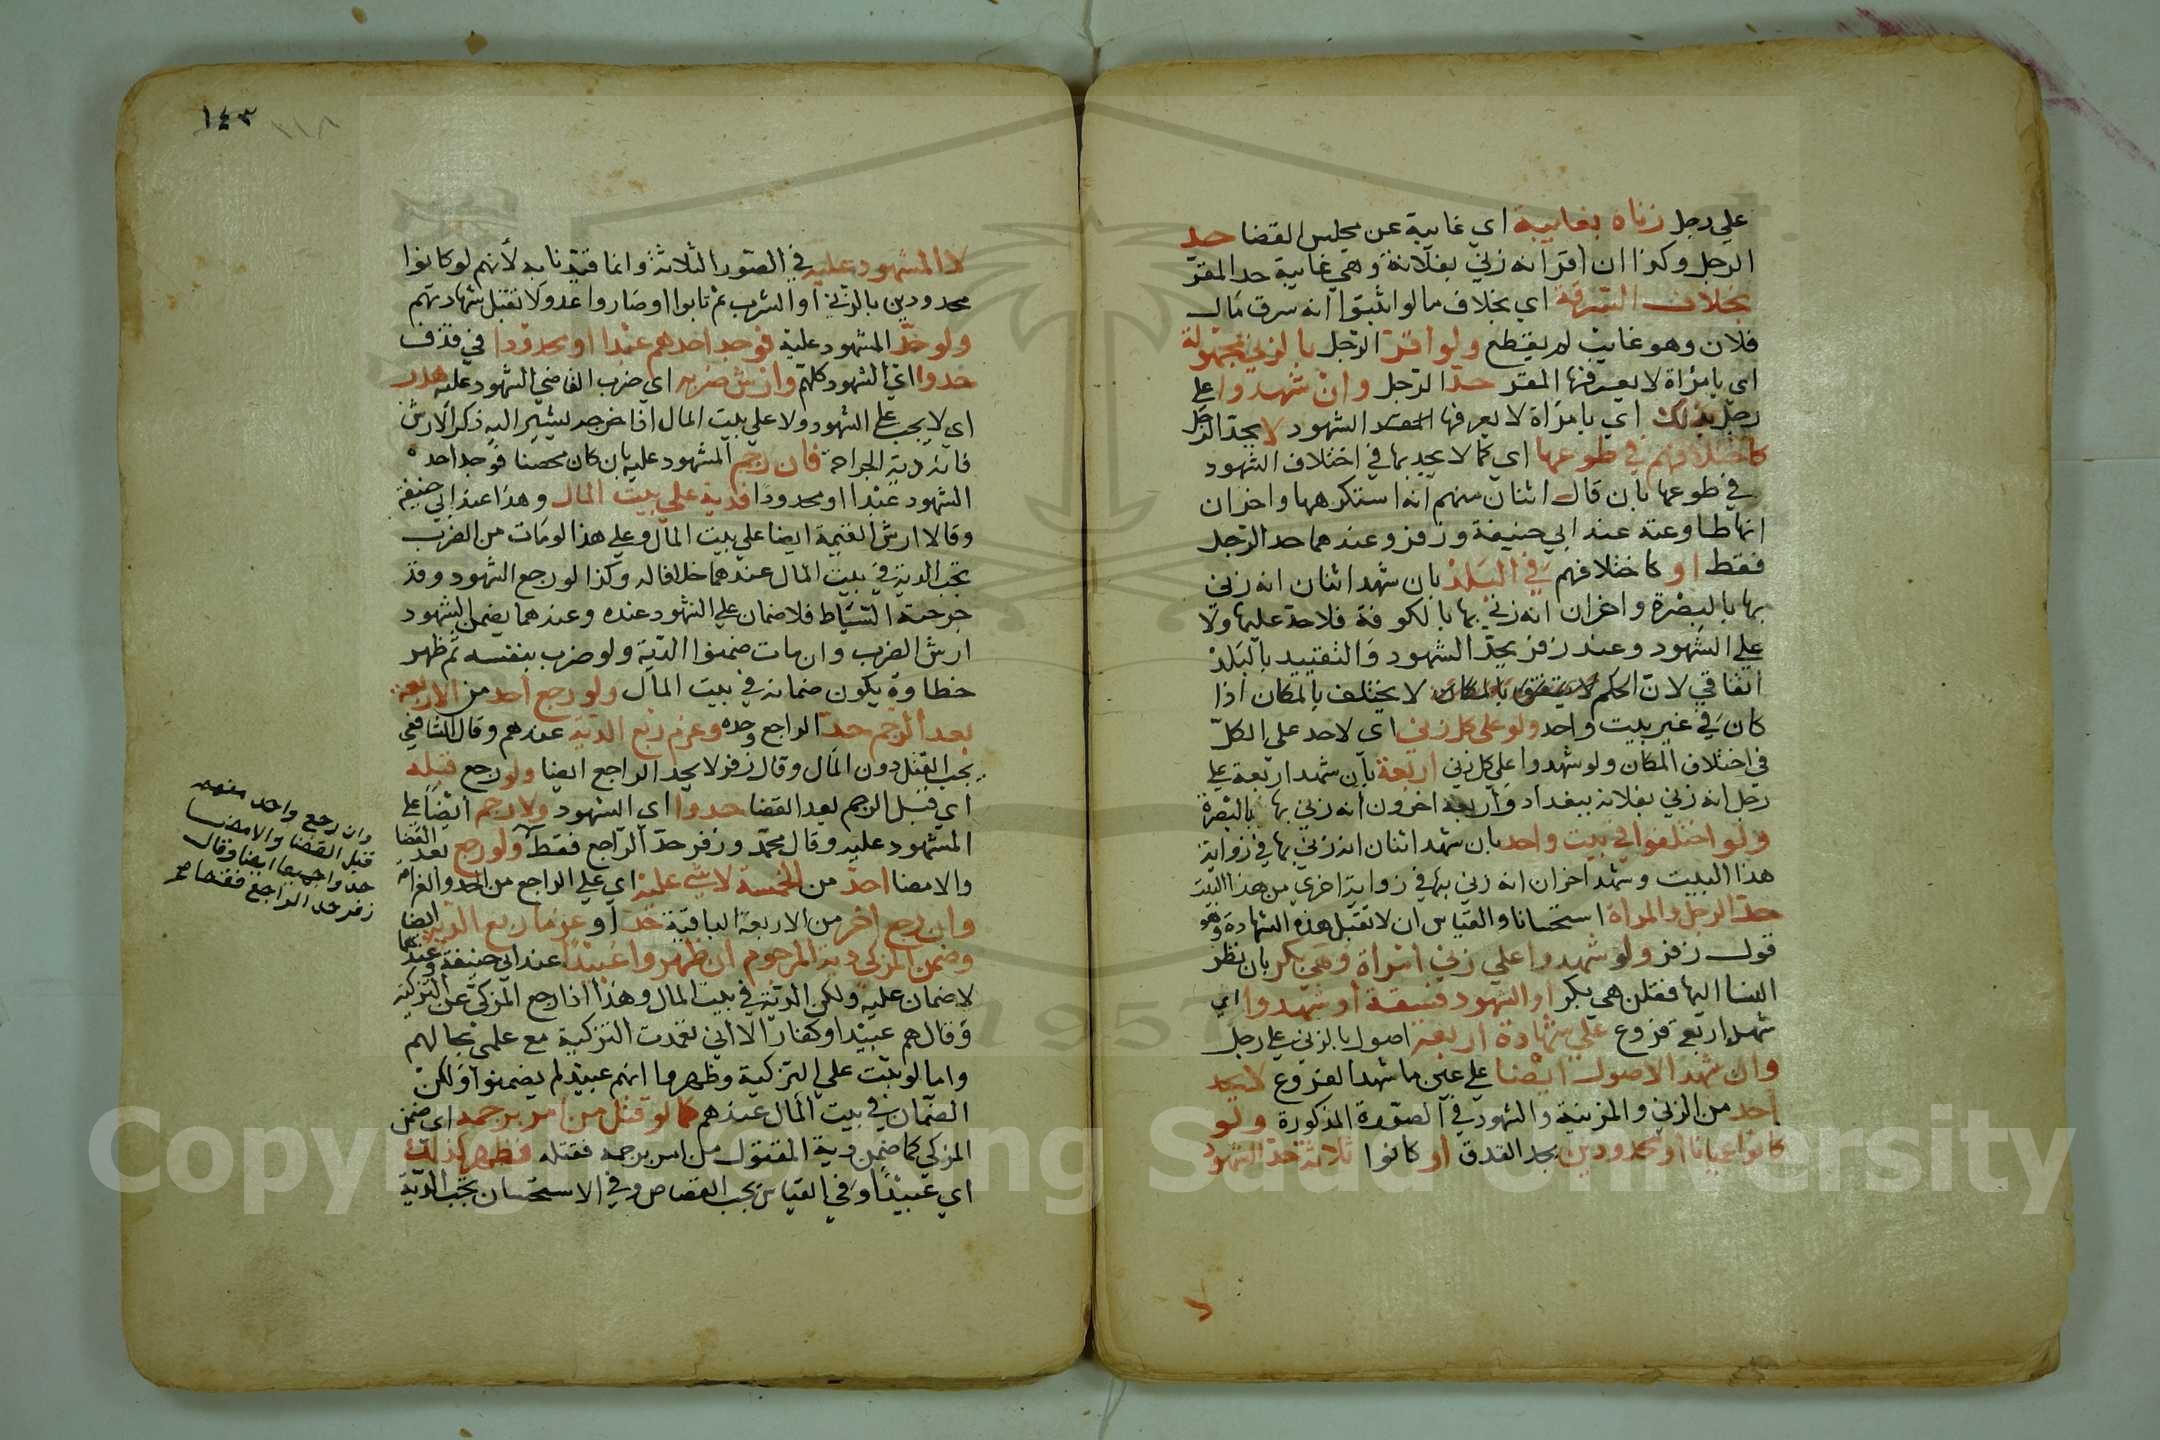 علي رجل زناه بغايبة اي غايبة عن مجلس القضا حد
الرجل وكذا ان اقر انه زني بفلانة وهي غايبة حد المقر
بخلاف السرقة اي بخلاف ما لو اثبتوا انه سرق مال
فلان وهو غايب لم يقطع ولو اقر الرجل بالزني بمجهولة
اي بامراة لا يعرفها المقر حد الرجل وان شهدوا علي
رجل بذلك اي بامراة لا يعرفها الشهود لا يحد الرجل
كاختلافهم في طوعها اي كما لا يحد بها في اختلاف الشهود
في طوعها بان قال اثنان منهم انه استكرهها واخران
انها طاوعته عند ابي حنيفة وزفر وعندهما حد الرجل
فقط او كاختلافهم في البلد بان شهد اثنان انه زني
بها بالبصرة واخران انه زني بها بالكوفة فلا حد عليها ولا
علي الشهود وعند زفر يحد الشهود والتقييد بالبلد
اتفاقي لان الحكم لا يتفق بالمكان لا يختلف بالمكان اذا
كان في غير بيت واحد ولو علي كل زني اي لا حد علي الكل
في اختلاف المكان ولو شهدوا علي كل زني اربعة بان شهد اربعة علي
رجل انه زني بفلانة ببغداد واربعة اخرون انه زني بها بالبصرة
ولو اختلفوا في بيت واحد بان شهد اثنان انه زني بها في زواية
هذا البيت وشهد اخران انه زني بها في زواية اخري من هذا البيت
حد الرجل والمراة استحسانا والقياس ان لا تقبل هذه الشهادة وهو
قول زفر ولو شهدوا علي زني امراة وهي بكر بان نظر
النسا اليها فقلن هي بكر او الشهود فسقة او شهدوا اي
شهد اربعة فروع علي شهادة اربعة اصول بالزني علي رجل
وان شهد الاصول ايضا علي عين ما شهد الفروع لا يحد
احد من الزني والمزنية والشهود في الصورة المذكورة ولو
كانوا عميانا او محدودين بحد القذف او كانوا ثلاثة حد الشهود
لا
١٤٣
٣١٨
لا المشهود عليه في الصور الثلاثة وانما قيدنا به لانهم لو كانوا
محدودين بالزني او الشرب ثم تابوا او صاروا عدولا تقبل شهادتهم
ولو حد المشهود عليه فوجد احدهم عبدا او محدودا في قذف
حدوا اي الشهود كلهم وارش ضربه اي ضرب القاضي المشهود عليه هدر
اي لا يجب علي الشهود ولا علي بيت المال اذا جرحه ليشير اليه ذكر الارش
فانه دية الجراحة فان رجم المشهود عليه بان كان محصنا فوجد احد
الشهود عبدا او محدودا فدية علي بيت المال وهذا عند ابي حنيفة
وقالا ارش القيمة ايضا علي بيت المال وعلي هذا لو مات من الضرب
تجب الدية في بيت المال عندهما خلافا له وكذا لو رجع الشهود وقد
جرحته السياط فلا ضمان علي الشهود عنده وعندهما يضمن الشهود
ارش الضرب وان مات ضمنوا الدية ولو ضرب بنفسه ثم ظهر
خطاوه يكون ضمانه في بيت المال ولو رجع احد من الاربعة
بعد الرجم حد الراجع وحده وغرم ربع الدية عندهم وقال الشافعي
يجب القتل دون المال وقال زفر لا يحد الراجع ايضا ولو رجع قبله
اي قبل الرجم بعد القضا حدوا اي الشهود ولا رجم ايضا علي
المشهود عليه وقال محمد وزفر حد الراجع فقط ولو رجع بعد القضا
والامضا احد من الخمسة لا شي عليه اي علي الراجع من الحد والغرم
وان رجع اخر من الاربعة الباقية حدا وغرما ربع الدية ايضا
وضمن المزكي دية المرجوم ان ظهروا عبيدا عند ابي حنيفة وعندهما
لا ضمان عليه ولكن الدية في بيت المال وهذا اذا رجع المزكي عن التزكية
وقال هم عبيد او كفار الا اني تعمدت التزكية مع علمي بحالهم
واما لو ثبت علي التزكية وظهر وا انهم عبيد لم يضمنوا ولكن
الضمان في بيت المال عندهم كما لو قتل من امر برجمه اي ضمن
المزكي كما ضمن دية المقتول من امر برجمه فقتله فظهر كذلك
اي عبيدا وفي القياس يجب القصاص وفي الاستحسان تجب الدية
وان رجع واحد منهم
قبل القضا والامضا
حدوا جميعا ايضا وقال
زفر حد الراجع فقط صح
Copyright © King Saud University
1957